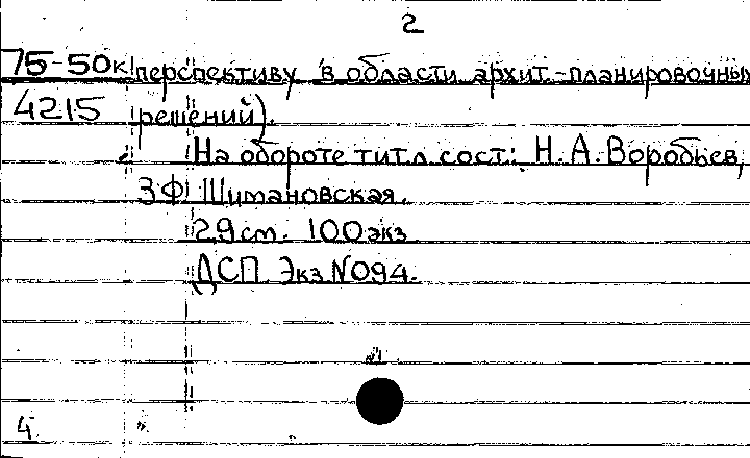 2
75-50к перспективу в области архит.-планировочных
4215 решений).
На обороте тит.л сост: Н.А.Воробьев,
ЗФ Шимановская.
29 см. 100 экз
ДСП Экз.N094.
4.